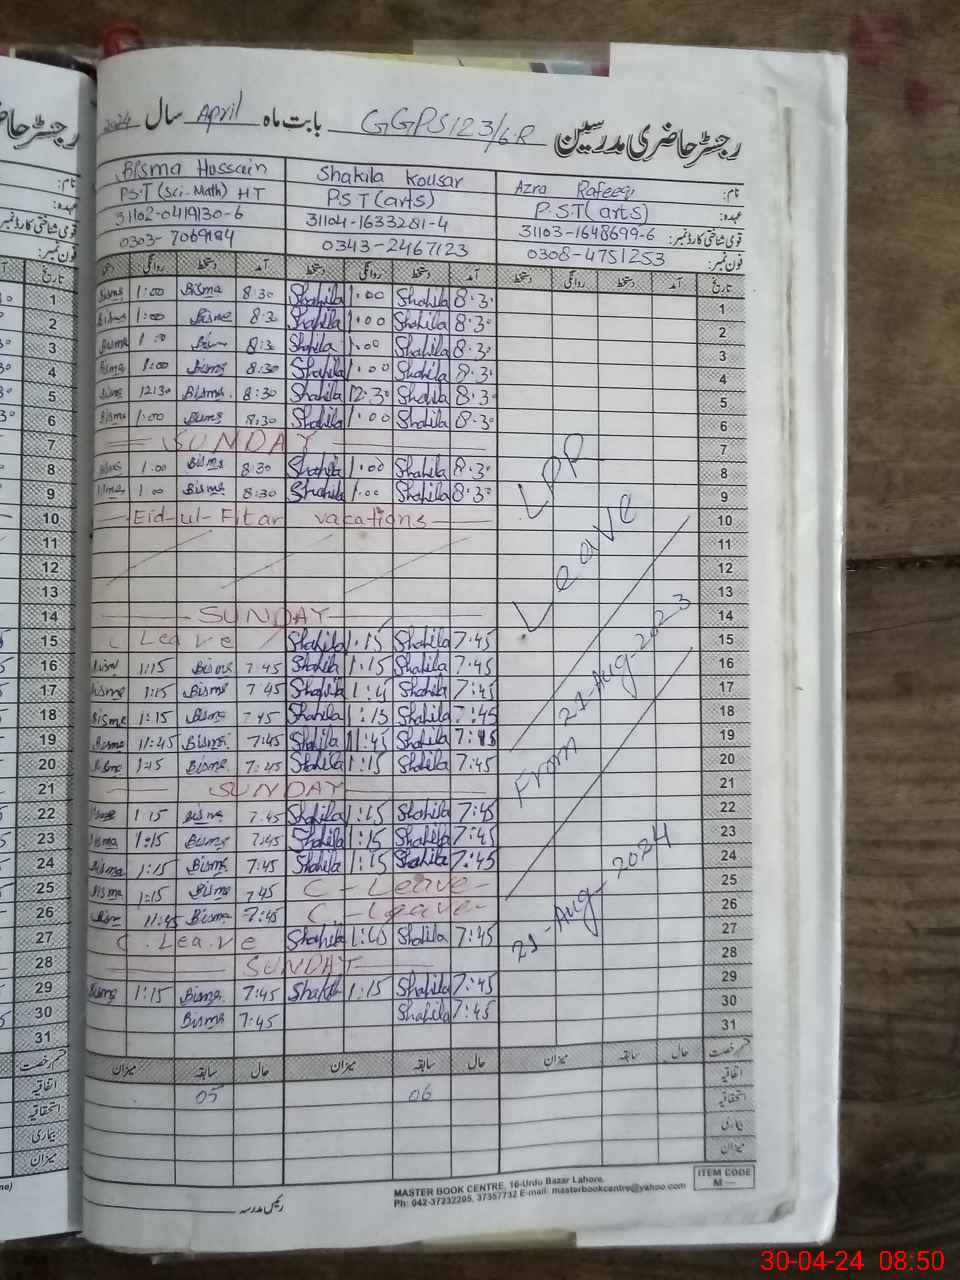 رجسٹر حاضری مدرسین GGPS 123/6.R بابت ماہ April سال 2024
نام: Azra Rafeeq Shakila Kousar Bisma Hussain
عہدہ: P.S.T(arts) PST(arts) PST(Sci-Math) HT
قومی شناختی کارڈ نمبر: 31103-1648699-6 31104-1633281-4 31102-0419130-6
فون نمبر: 0308-4751253 0343-2467123 0303-7069184
تاریخ آمد دستخط روانگی دستخط آمد دستخط روانگی دستخط آمد دستخط روانگی
1 8:30 Shakila 1:00 Shakila 8:30 Bisma 1:00 Bisma
2 8:30 Shakila 1:00 Shakila 8:30 Bisma 1:00 Bisma
3 8:30 Shakila 1:00 Shakila 8:30 1:00 Bisma
4 8:30 Shakila 1:00 Shakila 8:30 Bisma 1:00 Bisma
5 8:30 Shakila 12:30 Shakila 8:30 Bisma 12:30
6 8:30 Shakila 1:00 Shakila 8:30 Bisma 1:00 Bisma
7 SUNDAY
8 8:30 Shakila 1:00 Shakila 8:30 Bisma 1:00
9 8:30 Shakila 1:00 Shakila 8:30 Bisma 1:00
10 Eid-ul-Fitar vacations
11
12
13
14 SUNDAY
15 7:45 Shakila 1:15 Shakila C Leave
16 7:45 Shakila 1:15 Shakila 7:45 Bisma 1:15
17 7:45 Shakila Shakila 7:45 Bisma 1:15 Bisma
18 7:45 Shakila 1:15 Shakila 7:45 Bisma 1:15 Bisma
19 7:45 Shakila 11:45 Shakila 7:45 Bisma 11:45 Bisma
20 7:45 Shakila 1:15 Shakila 7:45 Bisma Bisma
21 SUNDAY
22 7:45 Shakila 1:15 Shakila 7:45 Bisma 1:15
23 7:45 Shakila 1:15 Shakila 7:45 Bisma 1:15 Bisma
24 7:45 Shakila 1:15 Shakila 7:45 Bisma 1:15 Bisma
25 C-Leave 7:45 Bisma 1:15 Bisma
26 C-Leave 7:45 Bisma 11:45
27 7:45 Shakila Shakila C.Leave
28 SUNDAY
29 7:45 Shakila 1:15 Shakila 7:45 Bisma 1:15 Bisma
30 7:45 Shakila 7:45 Bisma
31
LPR
Leave
From 21-Aug-2023
21-Aug-2024
قسم رخصت حال سابقہ میزان حال سابقہ میزان حال سابقہ میزان
اتفاقیہ 06 05
استحقاقیہ
بیماری
میزان
رئیس مدرسہ
MASTER BOOK CENTRE, 16-Urdu Bazar Lahore.
Ph: 042-37232205, 37357732 E-mail: masterbookcentre@yahoo.com
ITEM CODE
M—
30-04-24 08:50